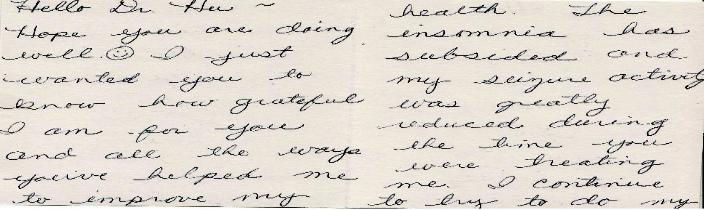 Hello Dr. Hu ~
Hope you are doing
well. ☺ I just
wanted you to
know how grateful
I am for you
and all the ways
you've helped me
to improve my
health. The
insomnia has
subsided and
my seizure activity
was greatly
reduced during
the time you
were treating
me. I continue
to try to do my